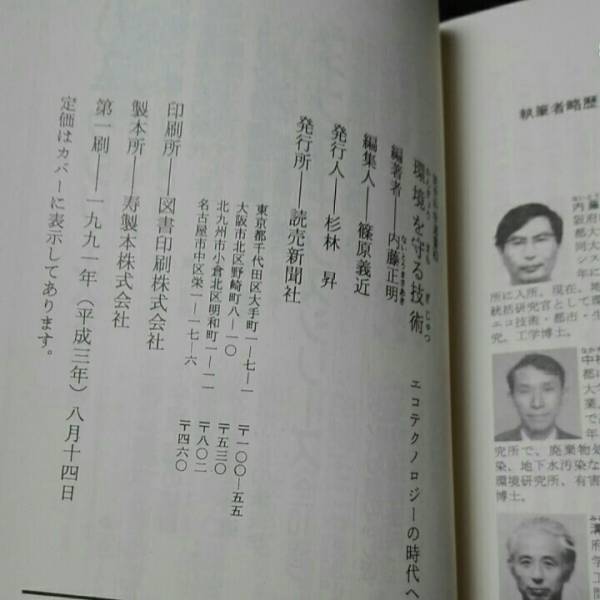 環境を守る技術
かんきょう まも ぎじゅつ
エコテクノロジーの時代へ
編著者――内藤正明
ないとうまさあき
編集人――篠原義近
発行人――杉林 昇
発行所――読売新聞社
東京都千代田区大手町一-七-一 〒一〇〇-五五
大阪市北区野崎町八-一〇 〒五三〇
北九州市小倉北区明和町一-一一 〒八〇二
名古屋市中区栄一-一七-六 〒四六〇
印刷所――図書印刷株式会社
製本所――寿製本株式会社
第一刷――一九九一年(平成三年)八月十四日
定価はカバーに表示してあります。
執筆者略歴
内藤
阪府
都大
同大
シス
所に入所。現在、地
統括研究官として環
エコ技術・都市・生
究。工学博士。
中村
都に
大
業。
でに
年
究所で、廃棄物処
染、地下水汚染な
環境研究所、有害
博士。
溝
府
学
工
間